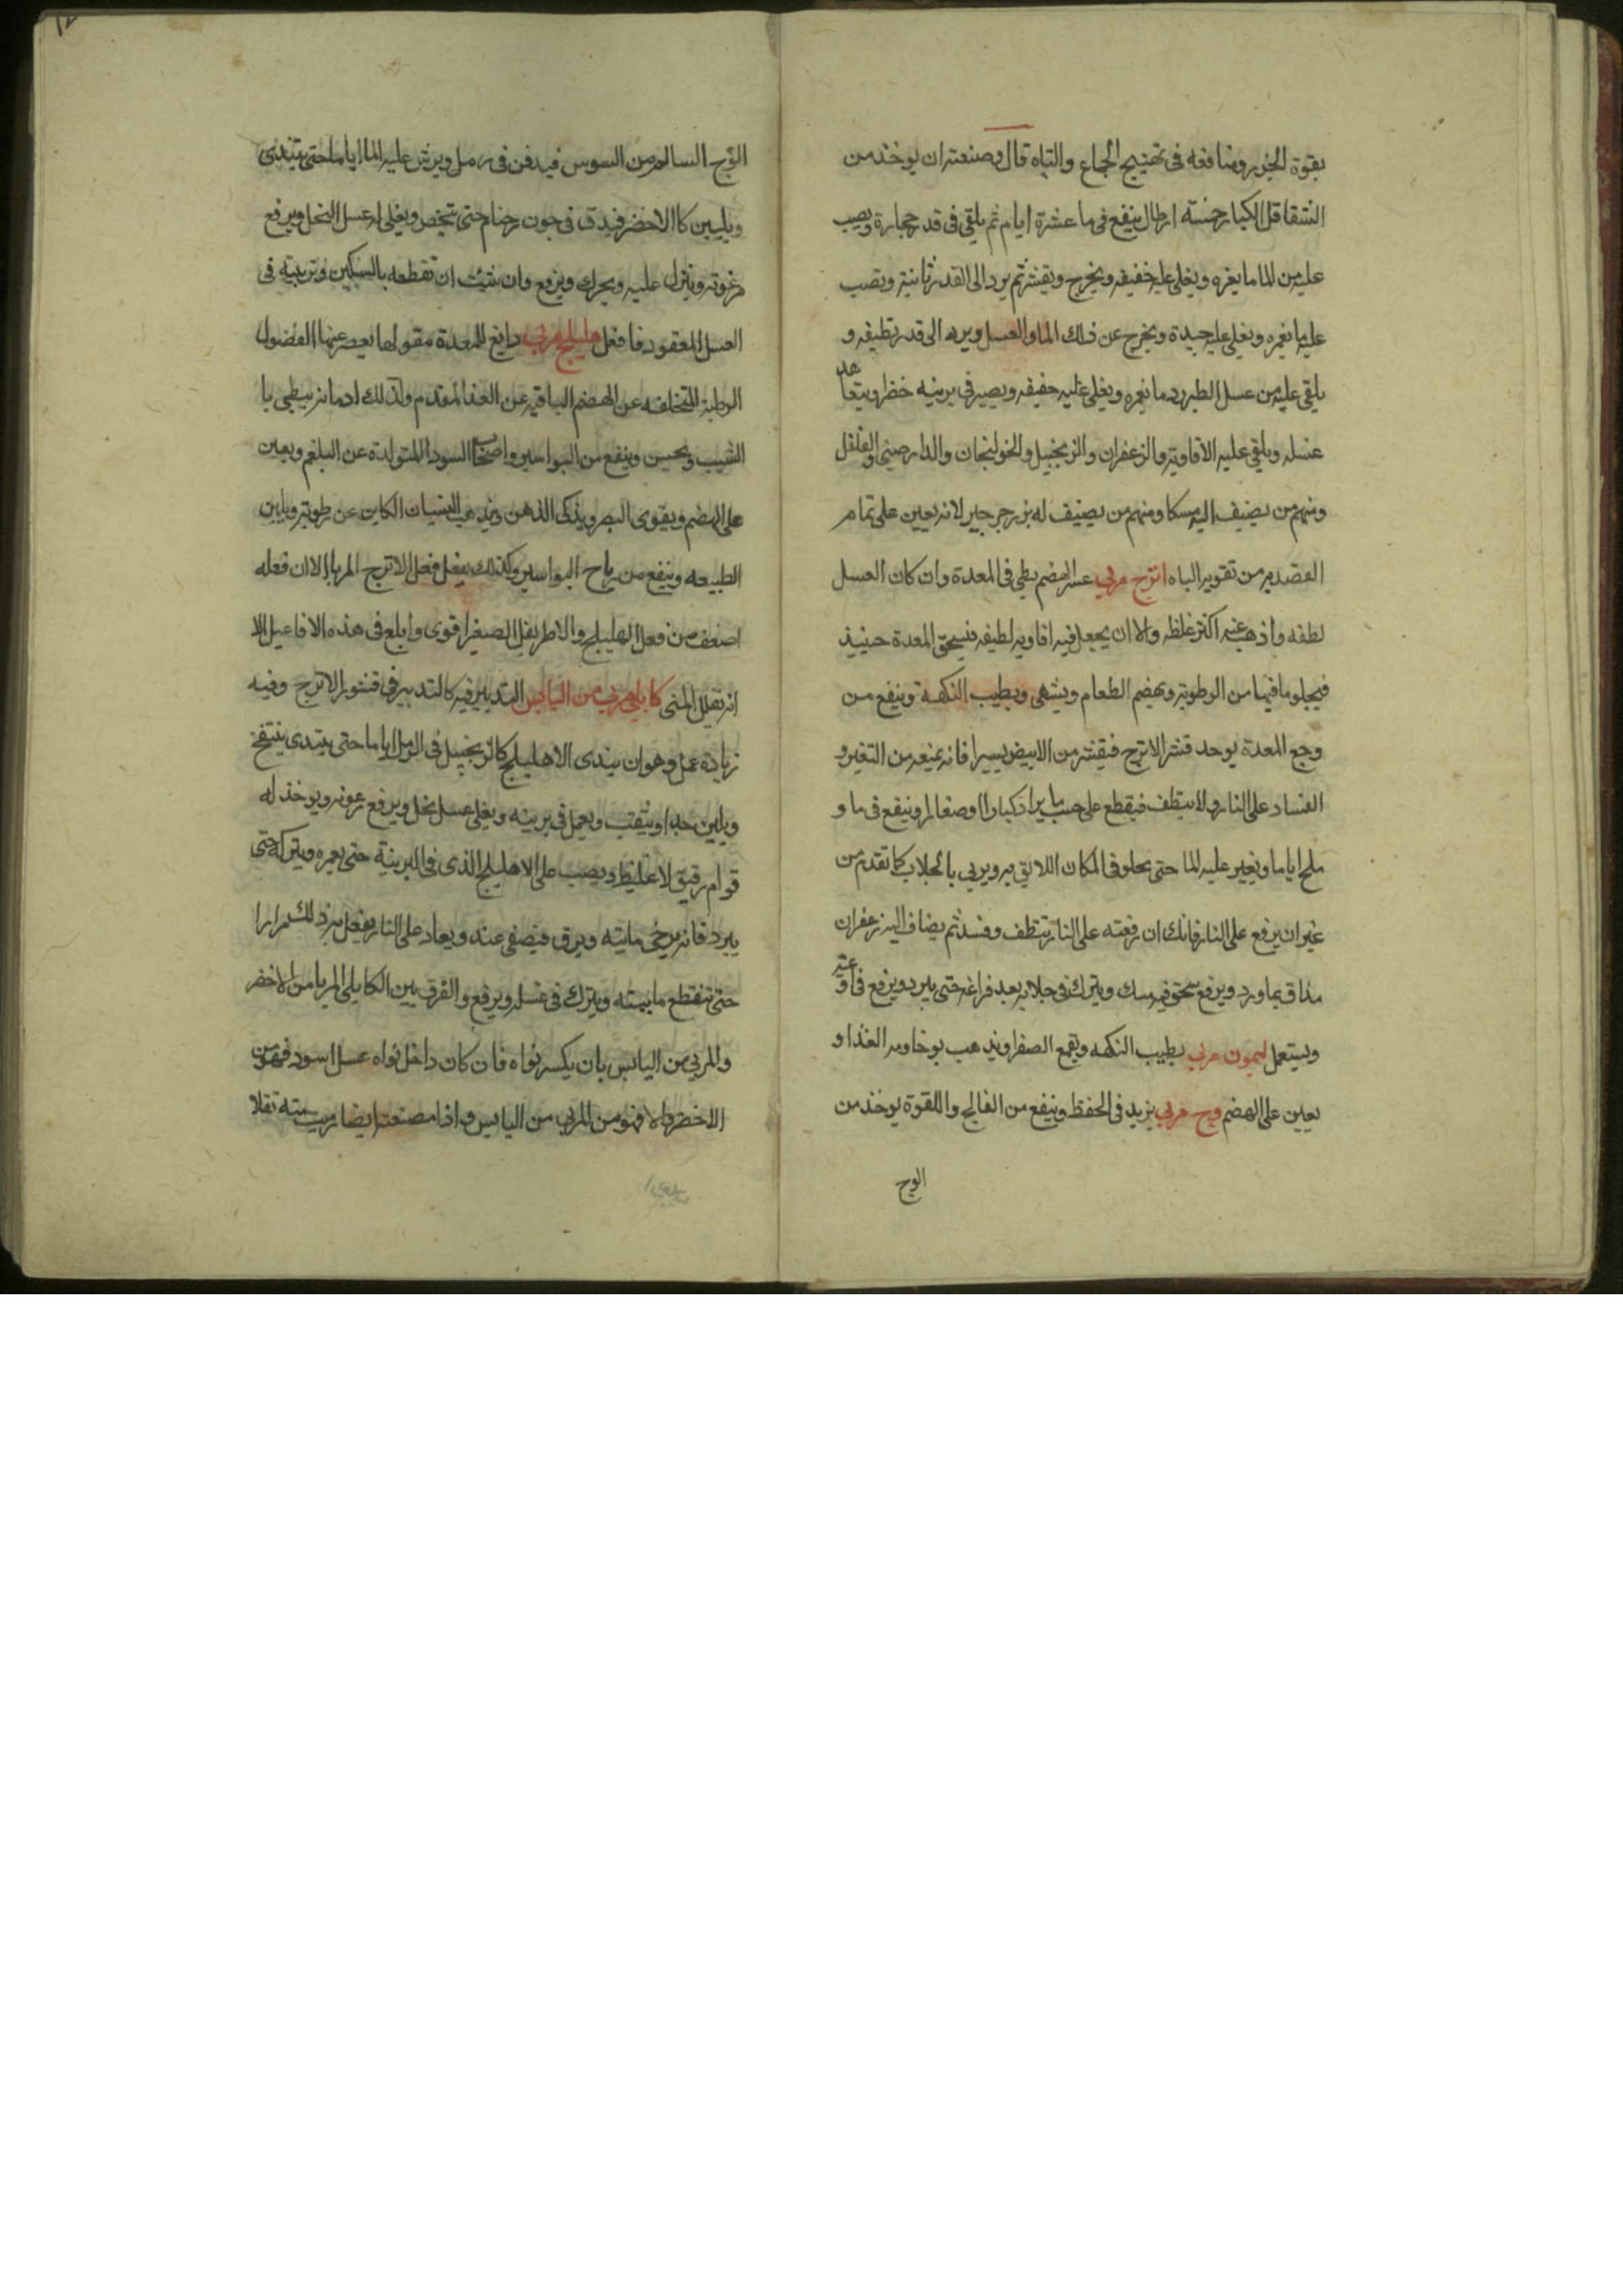 بقوة الخزر ومنافعه فى تهييج الجماع والتباه قال وصنعته ان يوخذ من
الشقاقل الكبار خمسة ارطال ينفع فى ما عشرة ايام ثم يلقى فى قدر حجارة ويصب
عليه من الما ما يغمره ويغلى غليه خفيفه ويخرج ويقشر ثم يرد الى القدر ثانية ويصب
عليه ما يغمره ويغلى غليه جيدة ويخرج عن ذلك الما والعسل ويرد الى قدر نظيفه و
يلقى عليه من عسل الطبرزد ما يغمره ويغلى غليه خفيفه ويصير فى برنيه خضرا ويتعاهد
عسله ويلقى عليه الافاويه والزعفران والزنجبيل والخولنجان والدارصينى والفلفل
ومنهم من يضيف اليه مسكا ومنهم من يضيف له بزر جرجير لانه يعين على تمام
القصد به من تقوية الباه اترج مربى عسر الهضم بطى فى المعدة وان كان العسل
لطفه واذهب عنه اكثر غلظه والا ان يجعل فيه افاويه لطيفه فيسحق المعدة حينيذ
فيجلو ما فيها من الرطوبة ويهضم الطعام ويشهى ويطيب النكهة وينفع من
وجع المعدة يوحد قشر الاترج فيقشر من الابيض يسيرا فانه يمنعه من التغير و
الفساد على النار ولا ينظف فيقطع على حسب ما يراد كبارا او صغار او ينفع فى ما و
ملح اياما ويغير عليه الما حتى يحلو فى المكان اللايق به ويربى بالجلاب كما تقدم من
غير ان يرفع على النار فانك ان رفعته على النار تنظف وفسد ثم يضاف اليه زعفران
مذاق بماورد ويرفع سحق فيه مسك ويترك فى جلابه بعد فراغه حتى يبرد ويرفع فى اوعيته
ويستعمل ليمون مربى يطيب النكهه ويقمع الصفرا ويذهب بوخاومه الغذا و
يعين على الهضم وج مربى يزيد فى الحفظ وينفع من الفالج واللقوة يوخذ من
الوج
الوج السالم من السوس فيدفن فى رمل ويرش عليه الما اياما حتى يتندى
ويلين كالاخضر فيدق فى جون رخام حتى يتخص ويغلى له عسل النحل ويرفع
رغوته وينزل عليه ويحرك ويرفع وان شيت ان تقطعه بالسكين وتربيه فى
العسل المعقود فافعل هليلج مربى دابغ للمعدة مقولها يعصر عنها الفضول
الرطبة المتخلفه عن الهضم الباقيه عن الغذا المتقدم ولذلك ادمانه يبطى با
الشيب ويحسن وينفع من البواسير واصحاب السودا المتولدة عن البلغم ويعين
على الهضم ويقوى البصر ويذكى الذهن ويذهب النسيان الكاين عن رطوبة ويلين
الطبيعه وينفع من رياح البواسير وكذلك يفعل فعل الاترج المربا الا ان فعله
اضعف من فعل الهليلج والاطريفل الصغير اقوى وابلغ فى هذه الافاعيل الا
انه يقلل المنى كابلى مربى من اليابس التدبير فيه كالتدبير فى قشور الاترج وفيه
زيادة عمل وهو ان يندى الاهليلج كالزنجبيل فى الرمل اياما حتى يبتدى ينتفخ
ويلين جدا ويثقب ويعمل فى برنيه ويغلى عسل نحل ويرفع رغوته ويوخذ له
قوام رقيق لا غليظ ويصب على الاهليلج الذى فى البرنية حتى يغمره ويتركه حتى
يبرد فانه يرخى مايته ويرق فيصفى عنه ويعاد على النار يفعل به ذلك مرارا
حتى تنقطع ماييته ويترك فى عسله ويرفع والفرق بين الكابلى المربا من الاخضر
والمربى من اليابس بان يكسر نواه فان كان داخل نواه عسل اسود فهو من
الاخضر والا فهو من المربى من اليابس واذا مصصته ايضا رميت تفلا